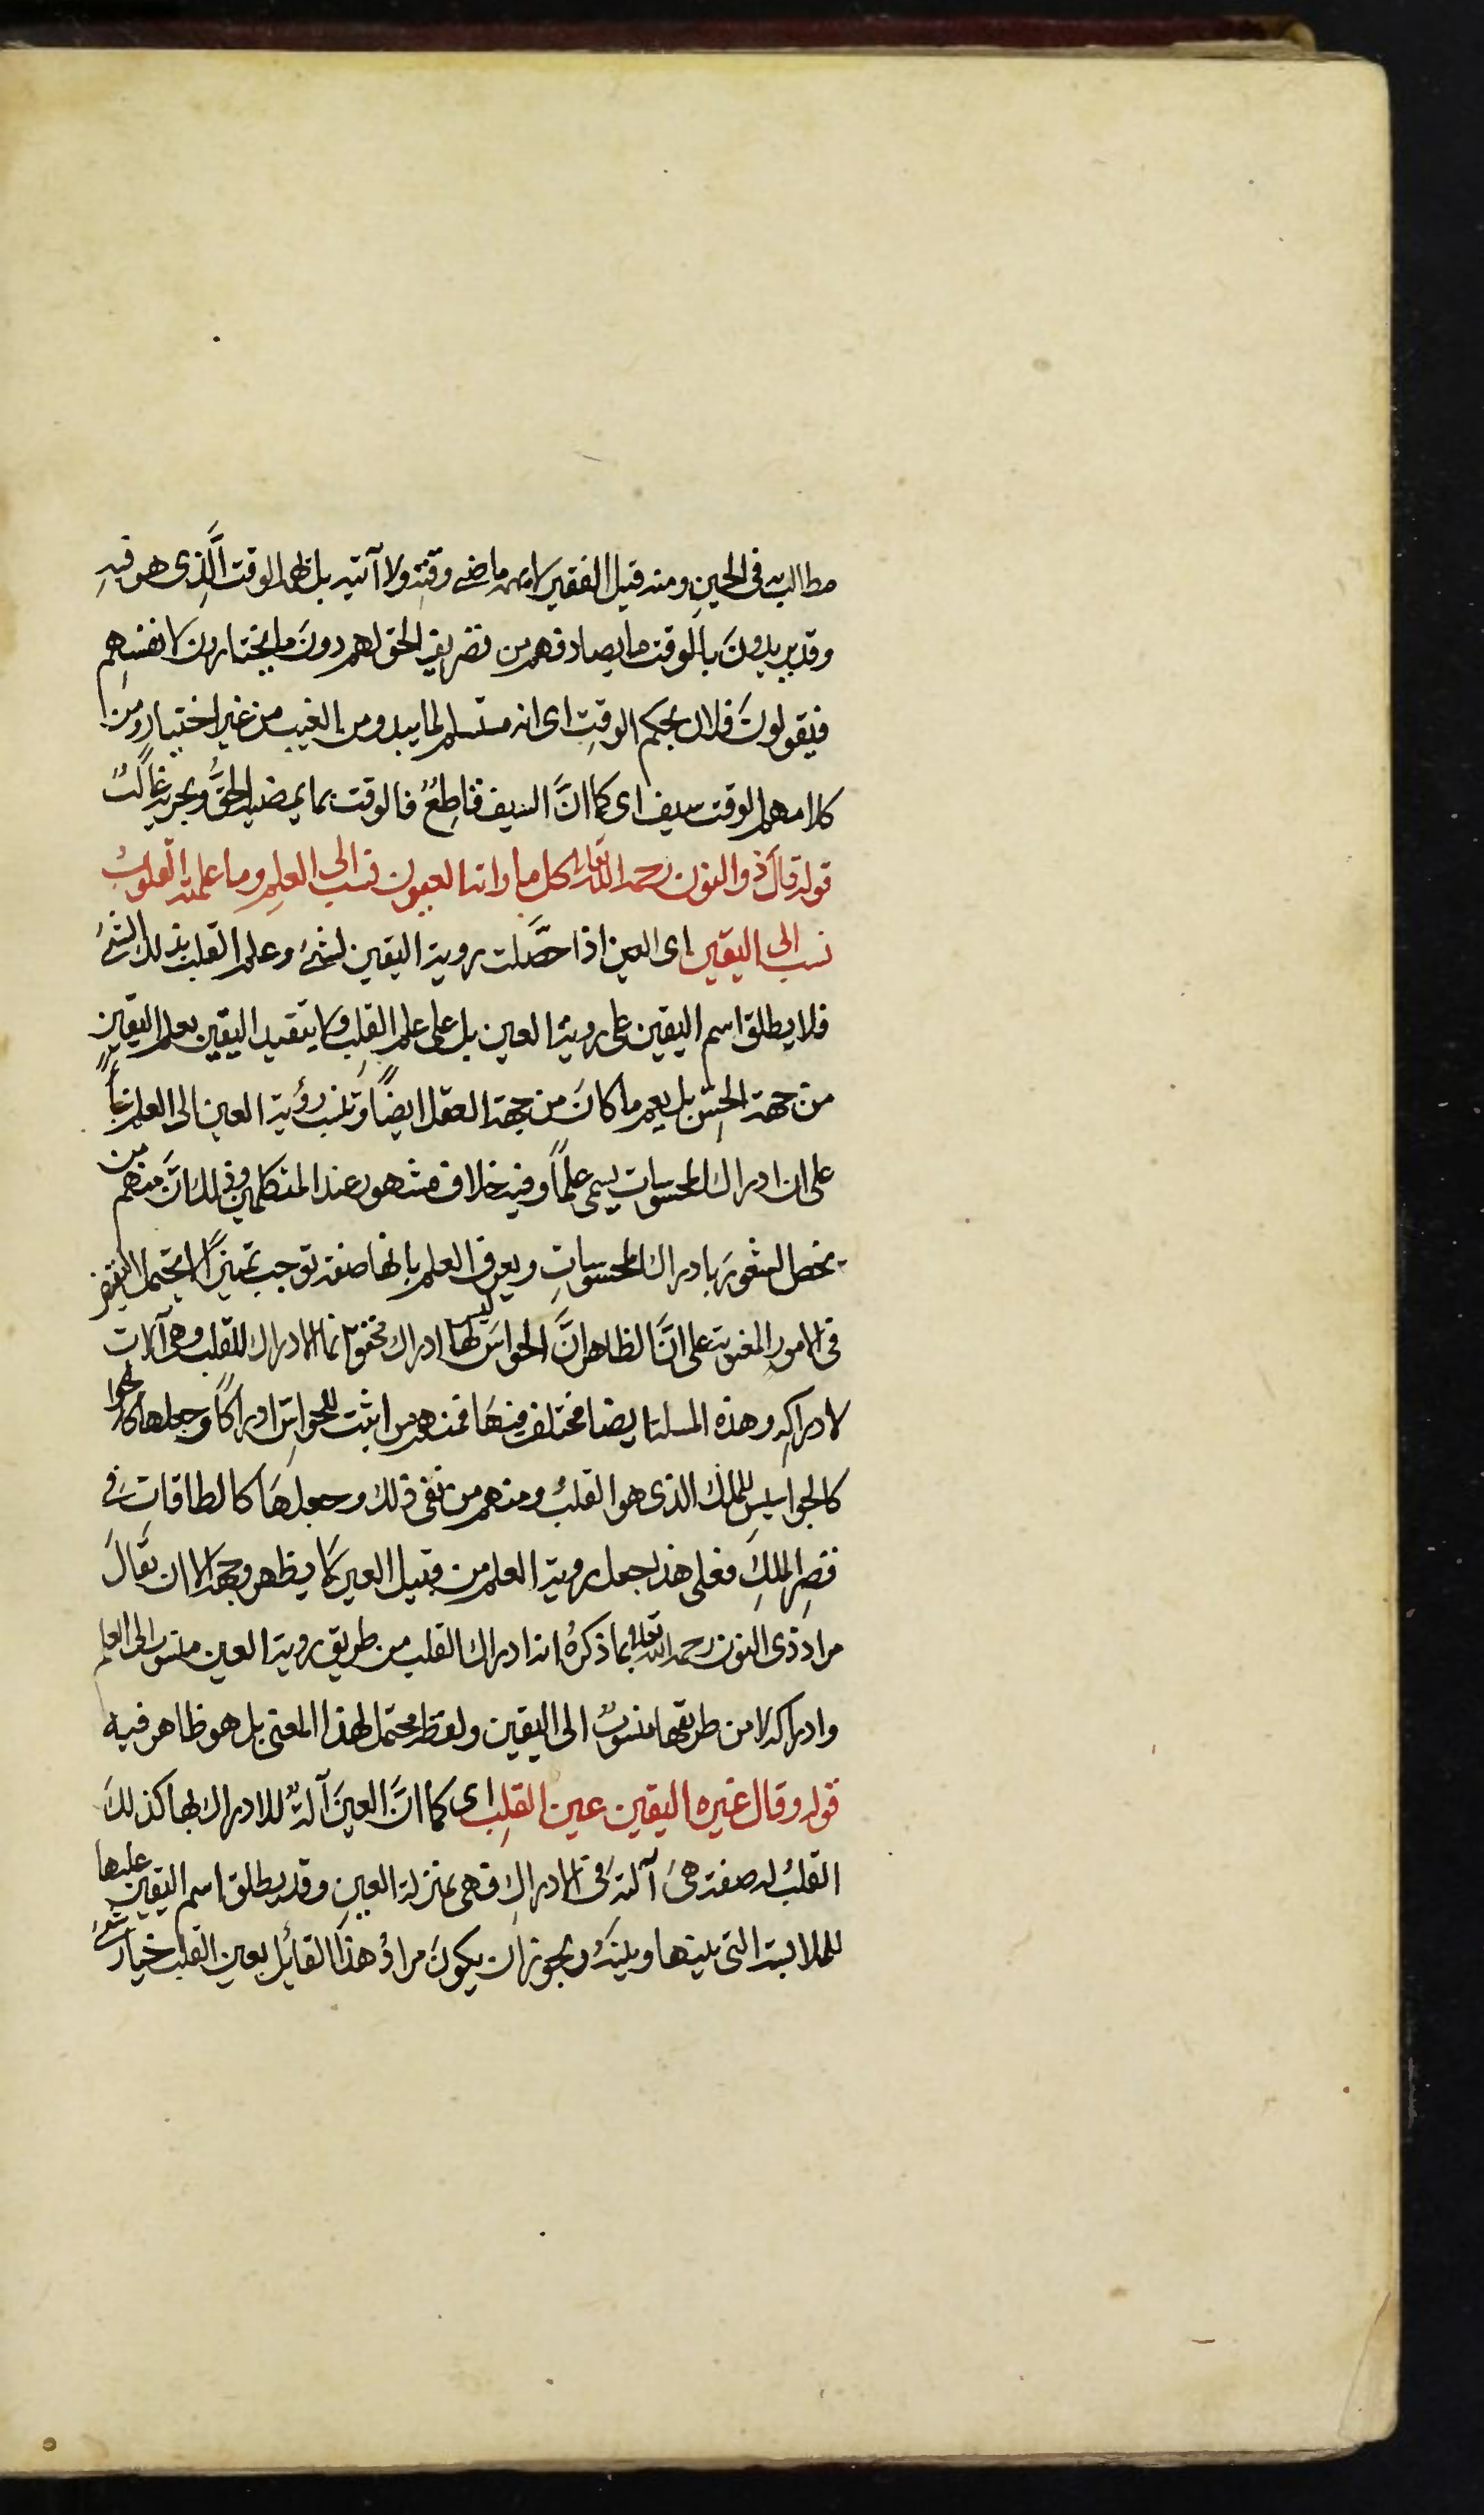 مطالب به في الحين ومنه قيل الفقير لا يهمه ماضي وقته ولا آتيه بل يهمه الوقت الَّذِى هو فيهِ
وقد يريدونَ بالوقت ما يصادفهم من تصريف الحق لهم دونَ ما يختارون لانفسهم
فيقولونَ فلان بحكم الوقتِ اى انه مستسلم لما يبدو من الغيب من غير اختيار ومن
كلامهم الوقت سيف اى كما انَّ السيف قاطِعٌ فالوقت بما يمضيه الحقُّ ويجريه غالبٌ
قوله قالَ ذو النون رحمه الله تعالى كل ما راته العيون نسب الى العلمِ وما علمته القلوبُ
نسب الى اليقين اى العين اذا حصَّلت روية اليقين لشئ وعلم القلب بذلك الشئ
فلا يطلق اسم اليقين على روية العين بل على علم القلبِ ولا يتقيد اليقين بعلم اليقين
من جهة الحِسّ بل يعم ما كانَ من جهة العقل ايضًا وتنسب رؤية العين الى العلم بناءً
على ان ادراك المحسوسات يسمى علمًا وفيه خلاف مشهور عند المتكلمين وذلك انَّ منهم من
يخص الشعورَ بادراك المحسوساتِ ويعرف العلم بانها صفة توجب تمييزًا لا يحتمل النقيض
فى الامورِ المعنوية على انَّ الظاهر انَّ الحواسَ ليس لها ادراك محقق انما الادراك للقلب وهى آلات
لادراكهِ وهذه المسلة ايضا مختلف فيهَا فمنهم من اثبت للحواسِّ ادراكًا وجعلها
كالجواسيسِ للملك الذى هو القلبُ ومنهم من نفى ذلك وجعلهَا كالطاقاتِ فى
قصرِ الملكِ فعلى هذا جعل روية العلم من قبيل العين لا يظهر وجهه الا ان يقالَ
مراد ذى النون رحمه الله تعالى بما ذكرهُ ان ادراك القلب من طريق روية العين منسوب الى العلم
وادراكه لا من طريقها منسوبٌ الى اليقين ولفظه محتمل لهذا المعنى بل هو ظاهر فيه
قوله وقال غيره اليقين عين القلبِ اى كما انَّ العينَ آلةٌ للادراك بها كذلكَ
القلبُ له صفة هىَ آلته فى الادراكِ فهى بمنزلة العينِ وقد يطلق اسم اليقين عليها
للملابسة التى بينها وبينهُ ويجوز ان يكونَ مرادُ هذا القائِل بعين القلب خيار شئ